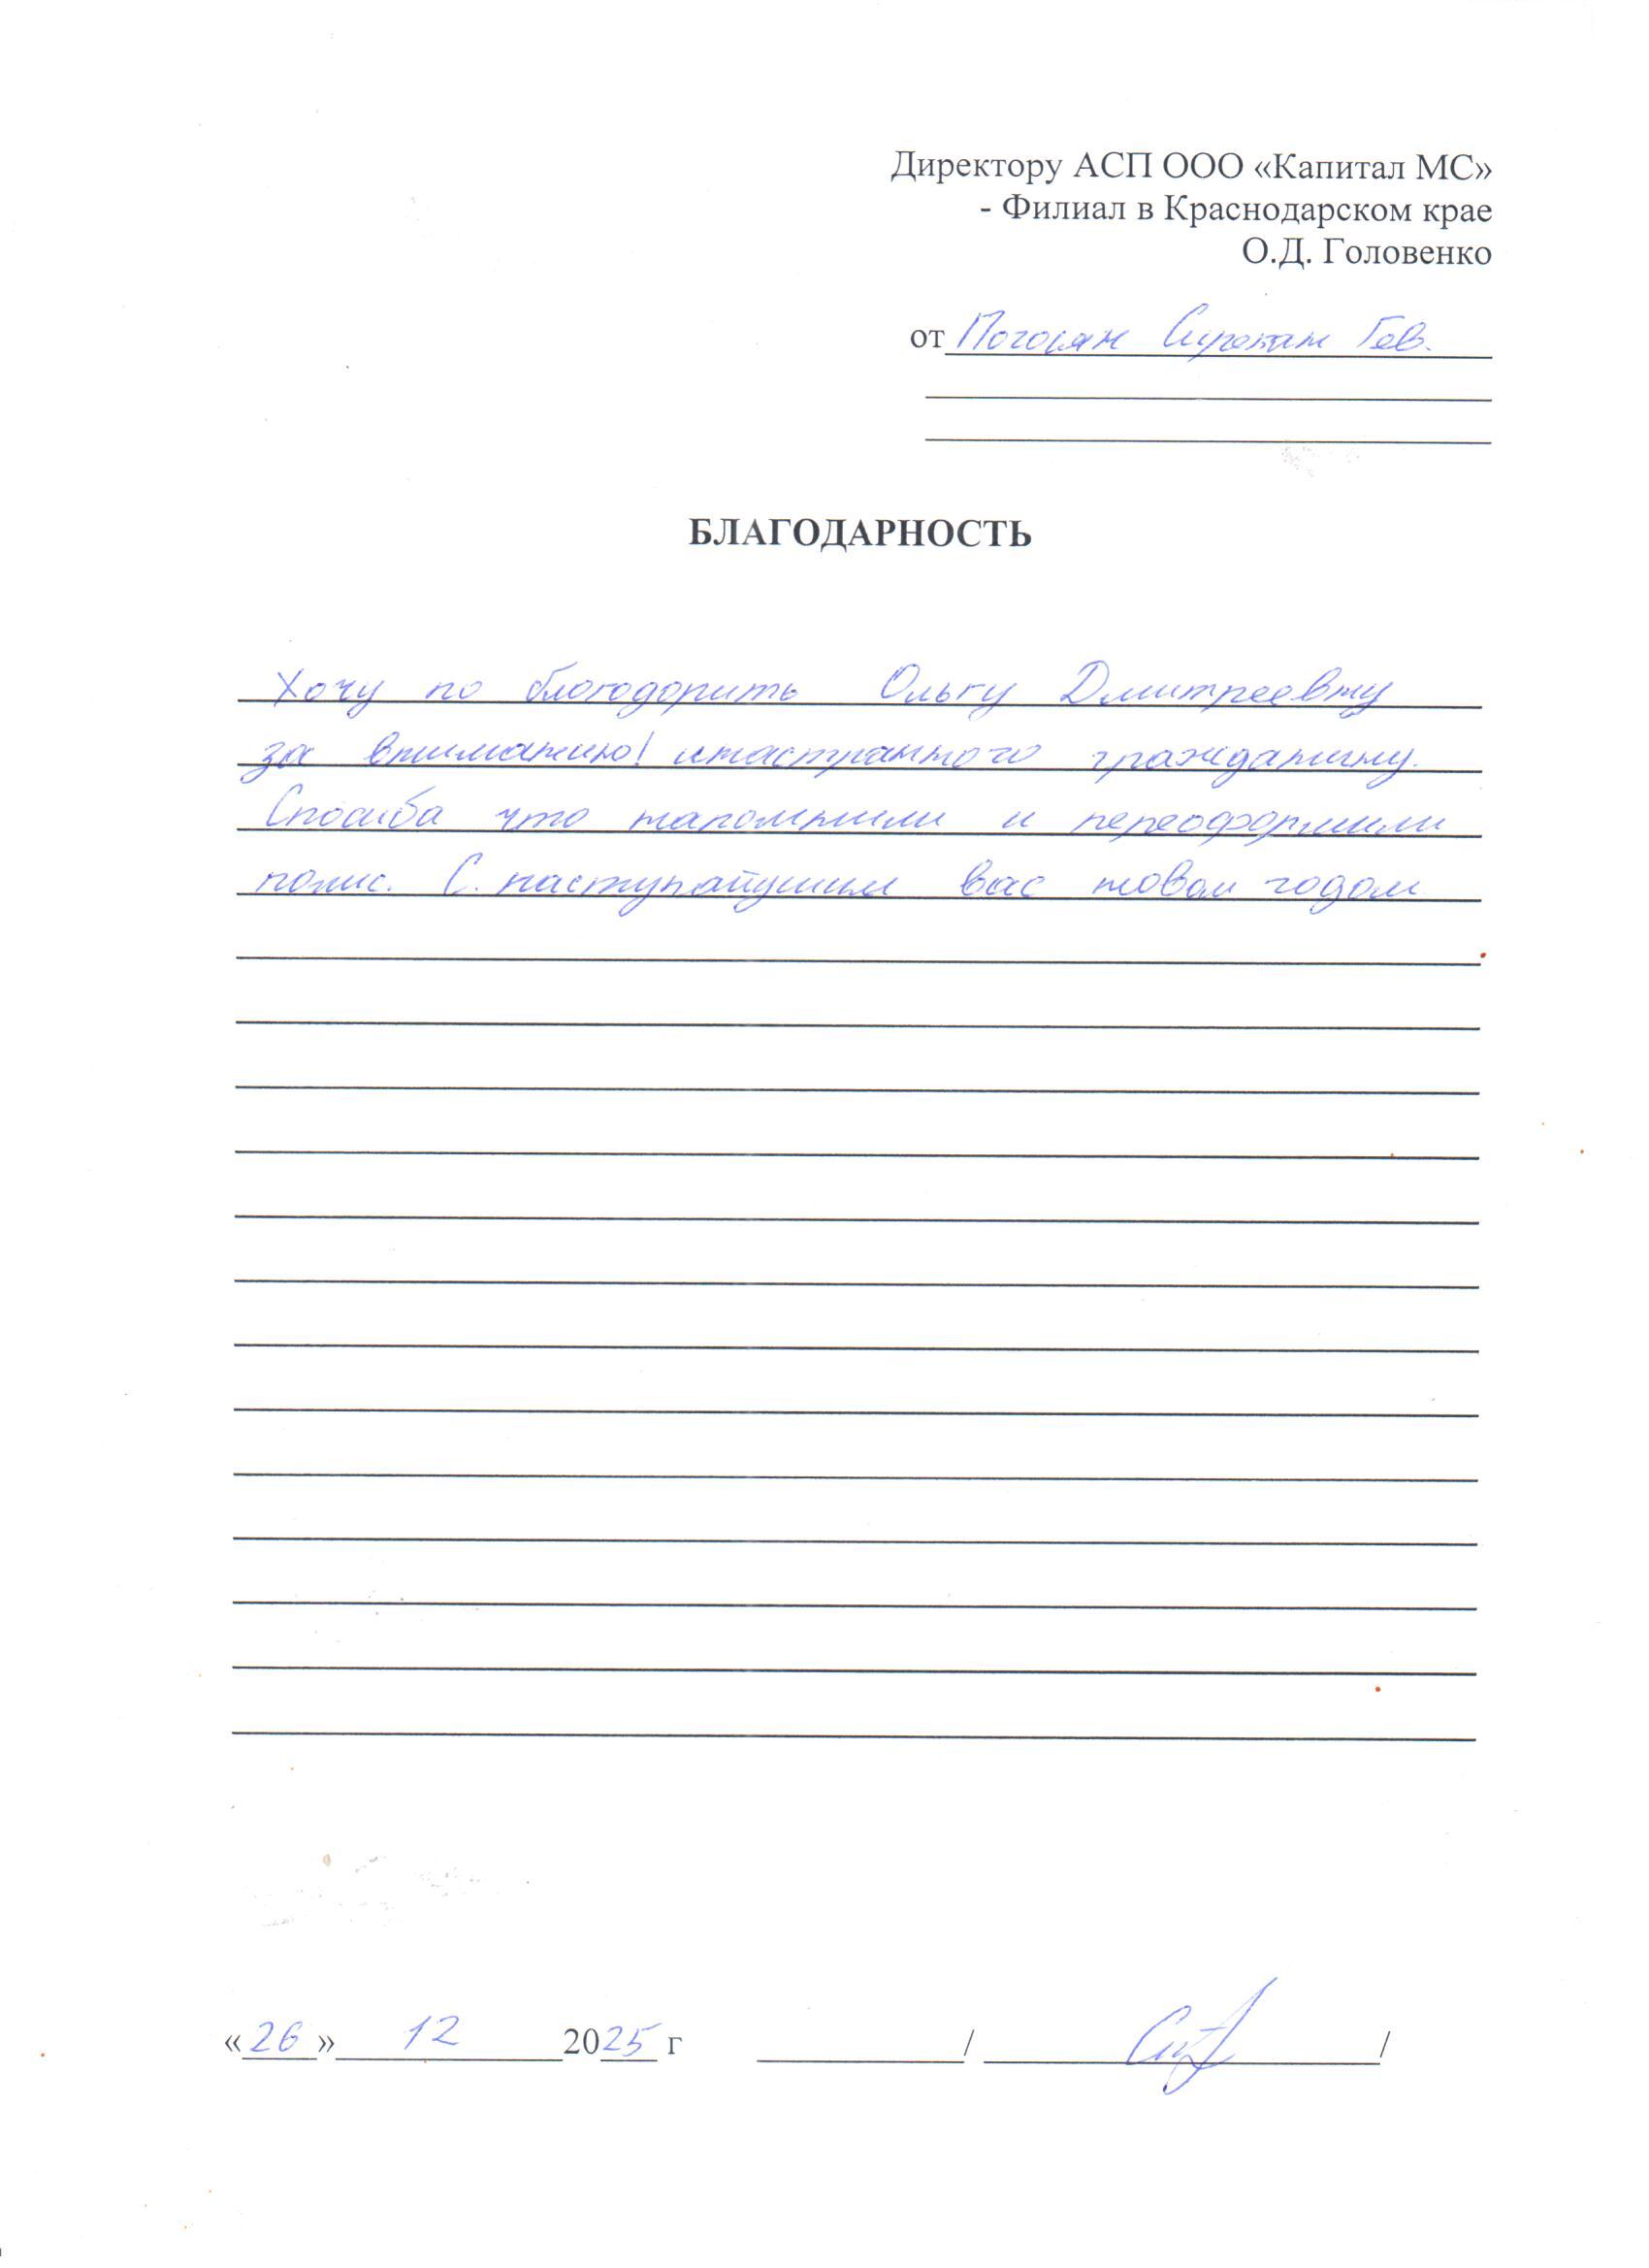 Директору АСП ООО «Капитал МС»
- Филиал в Краснодарском крае
О.Д. Головенко
от Погосян Сирекан Гев.
БЛАГОДАРНОСТЬ
Хочу по благодорить Ольгу Дмитреевну
за вниманию! инастранного гражданину.
Спосиба что напомнили и переоформили
полис. С. наступайушим вас новом годом
«26» 12 2025 г / /